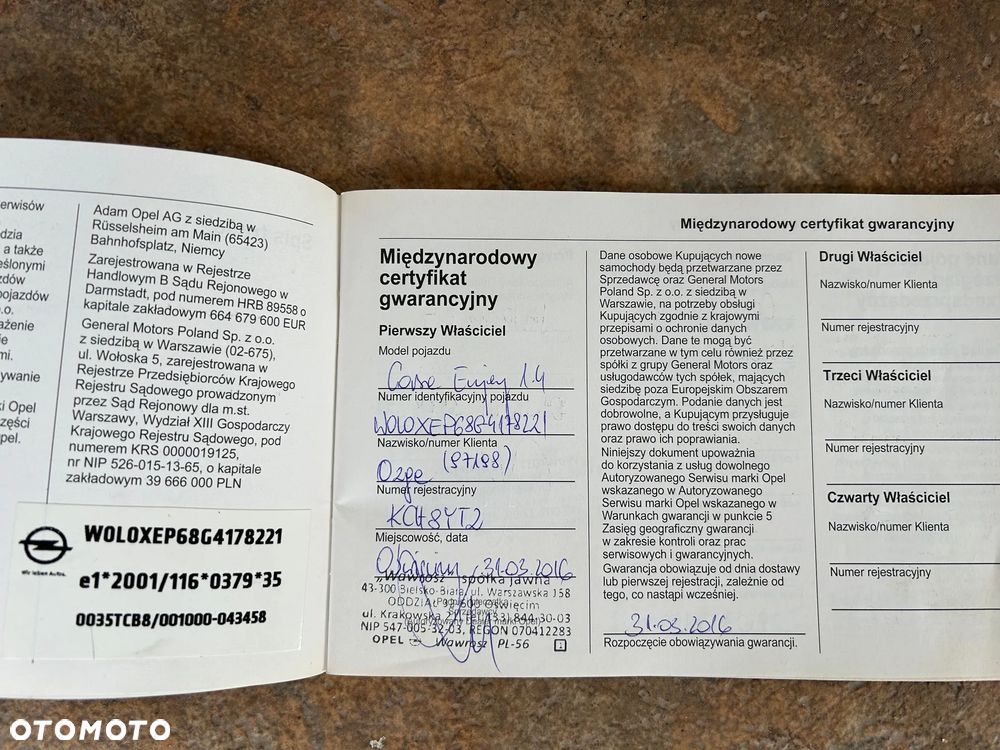 erwisów
dzia
a także
eślonymi
zdów
pojazdów
o.
ażenie
ie
mi.
ywanie
ki Opel
zęści
pel.
Adam Opel AG z siedzibą w
Rüsselsheim am Main (65423)
Bahnhofsplatz, Niemcy
Zarejestrowana w Rejestrze
Handlowym B Sądu Rejonowego w
Darmstadt, pod numerem HRB 89558 o
kapitale zakładowym 664 679 600 EUR
General Motors Poland Sp. z o.o.
z siedzibą w Warszawie (02-675),
ul. Wołoska 5, zarejestrowana w
Rejestrze Przedsiębiorców Krajowego
Rejestru Sądowego prowadzonym
przez Sąd Rejonowy dla m.st.
Warszawy, Wydział XIII Gospodarczy
Krajowego Rejestru Sądowego, pod
numerem KRS 0000019125,
nr NIP 526-015-13-65, o kapitale
zakładowym 39 666 000 PLN
Wir leben Autos.
W0L0XEP68G4178221
e1*2001/116*0379*35
0035TCB8/001000-043458
Międzynarodowy certyfikat gwarancyjny
Międzynarodowy
certyfikat
gwarancyjny
Pierwszy Właściciel
Model pojazdu
Corsa Enjoy 1.4
Numer identyfikacyjny pojazdu
W0L0XEP68G4178221
Nazwisko/numer Klienta
(97198)
Numer rejestracyjny
KCH8YT2
Miejscowość, data
Oświęcim, 31.03.2016
„Wawrosz” spółka jawna
43-300 Bielsko-Biała, ul. Warszawska 158
ODDZIAŁ 32-600 Oświęcim
ul. Krakowska 2, Tel. (33) 844-30-03
NIP 547-005-32-03, REGON 070412283
OPEL Wawrosz PL-56
Dane osobowe Kupujących nowe
samochody będą przetwarzane przez
Sprzedawcę oraz General Motors
Poland Sp. z o.o. z siedzibą w
Warszawie, na potrzeby obsługi
Kupujących zgodnie z krajowymi
przepisami o ochronie danych
osobowych. Dane te mogą być
przetwarzane w tym celu również przez
spółki z grupy General Motors oraz
usługodawców tych spółek, mających
siedzibę poza Europejskim Obszarem
Gospodarczym. Podanie danych jest
dobrowolne, a Kupującym przysługuje
prawo dostępu do treści swoich danych
oraz prawo ich poprawiania.
Niniejszy dokument upoważnia
do korzystania z usług dowolnego
Autoryzowanego Serwisu marki Opel
wskazanego w Autoryzowanego
Serwisu marki Opel wskazanego w
Warunkach gwarancji w punkcie 5
Zasięg geograficzny gwarancji
w zakresie kontroli oraz prac
serwisowych i gwarancyjnych.
Gwarancja obowiązuje od dnia dostawy
lub pierwszej rejestracji, zależnie od
tego, co nastąpi wcześniej.
31.03.2016
Rozpoczęcie obowiązywania gwarancji.
Drugi Właściciel
Nazwisko/numer Klienta
Numer rejestracyjny
Trzeci Właściciel
Nazwisko/numer Klienta
Numer rejestracyjny
Czwarty Właściciel
Nazwisko/numer Klienta
Numer rejestracyjny
OTOMOTO